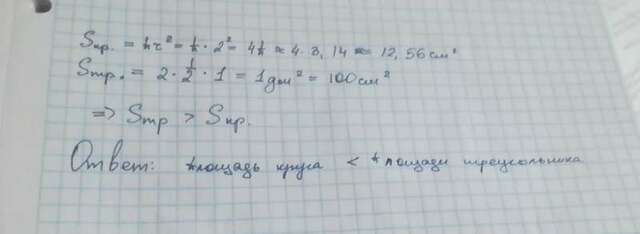 Sкр. = πr² = π · 2² = 4π ≈ 4 · 3,14 ≈ 12,56 см²
Sтр. = 2 · 1/2 · 1 = 1 дм² = 100 см²
=> Sтр > Sкр.
Ответ: площадь круга < площади треугольника